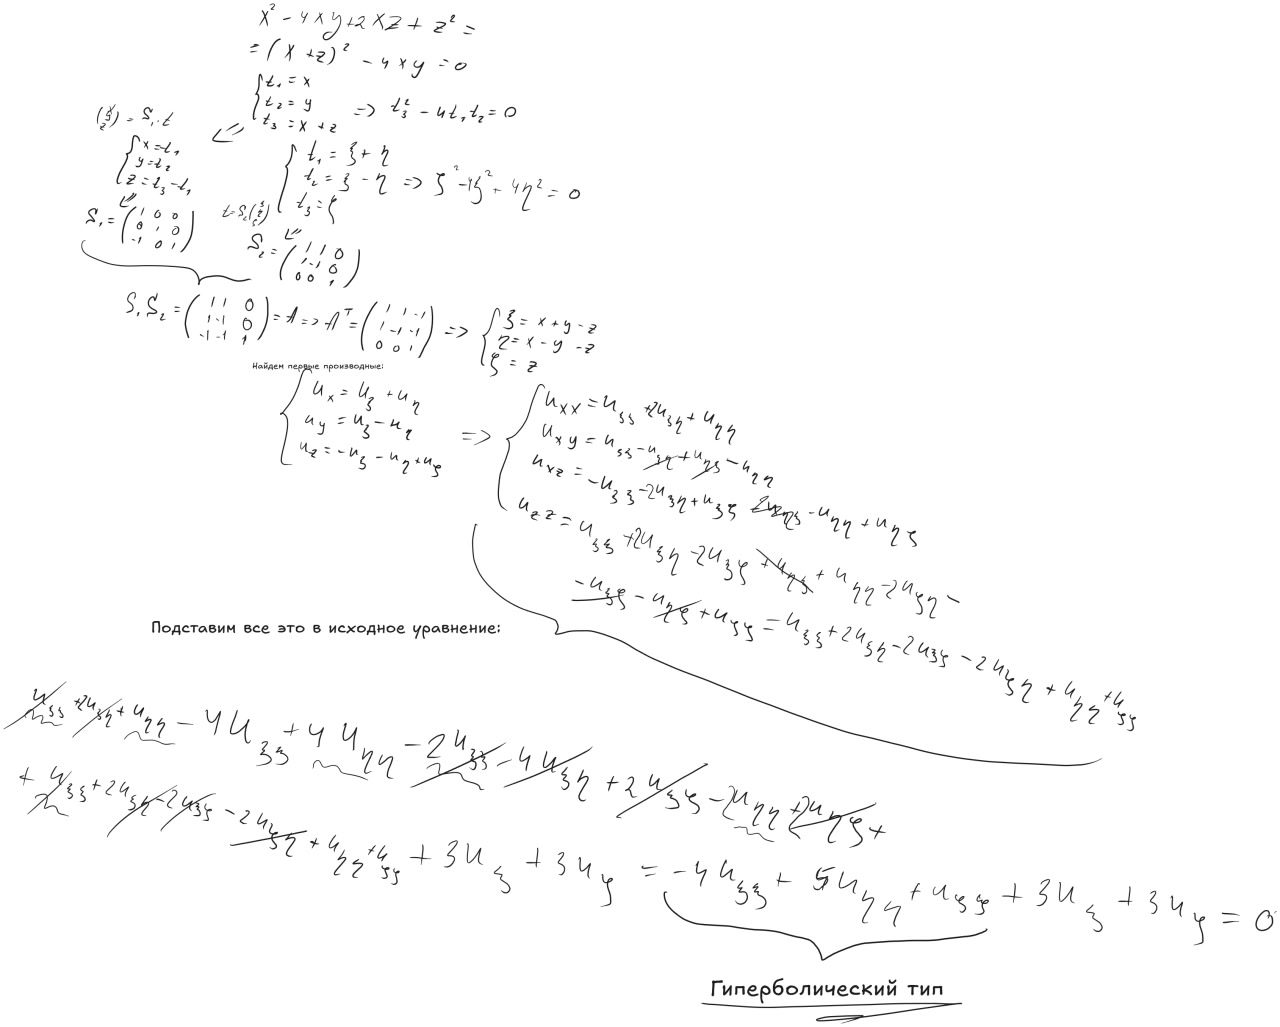 x² - 4xy + 2xz + z² =
= (x + z)² - 4xy = 0
{ t₁ = x
t₂ = y
t₃ = x + z
=> t₃² - 4t₁t₂ = 0
(x y z) = S₁·t
{ x = t₁
y = t₂
z = t₃ - t₁
S₁ = ( 1 0 0
0 1 0
-1 0 1 )
{ t₁ = ξ + η
t₂ = ξ - η
t₃ = ζ
=> ζ² - 4ξ² + 4η² = 0
t = S₂(ξ η ζ)
S₂ = ( 1 1 0
1 -1 0
0 0 1 )
S₁S₂ = ( 1 1 0
1 -1 0
-1 -1 1 )
= A => Aᵀ = ( 1 1 -1
1 -1 -1
0 0 1 )
=> { ξ = x + y - z
η = x - y - z
ζ = z
Найдем первые производные:
{ u_x = u_ξ + u_η
u_y = u_ξ - u_η
u_z = -u_ξ - u_η + u_ζ
=> { u_xx = u_ξξ + 2u_ξη + u_ηη
u_xy = u_ξξ - u_ξη + u_ηξ - u_ηη
u_xz = -u_ξξ - 2u_ξη + u_ξζ - u_ηη + u_ηζ
u_zz = u_ξξ + 2u_ξη - 2u_ξζ + u_ηξ + u_ηη - 2u_ζη -
- u_ξζ - u_ηζ + u_ζζ = u_ξξ + 2u_ξη - 2u_ξζ - 2u_ζη + u_ηη + u_ζζ
Подставим все это в исходное уравнение:
u_ξξ + 2u_ξη + u_ηη - 4u_ξξ + 4u_ηη - 2u_ξξ - 4u_ξη + 2u_ξζ - 2u_ηη + 2u_ηζ +
+ u_ξξ + 2u_ξη - 2u_ξζ - 2u_ζη + u_ηη + u_ζζ + 3u_ξ + 3u_ζ = -4u_ξξ + 5u_ηη + u_ζζ + 3u_ξ + 3u_ζ = 0
Гиперболический тип